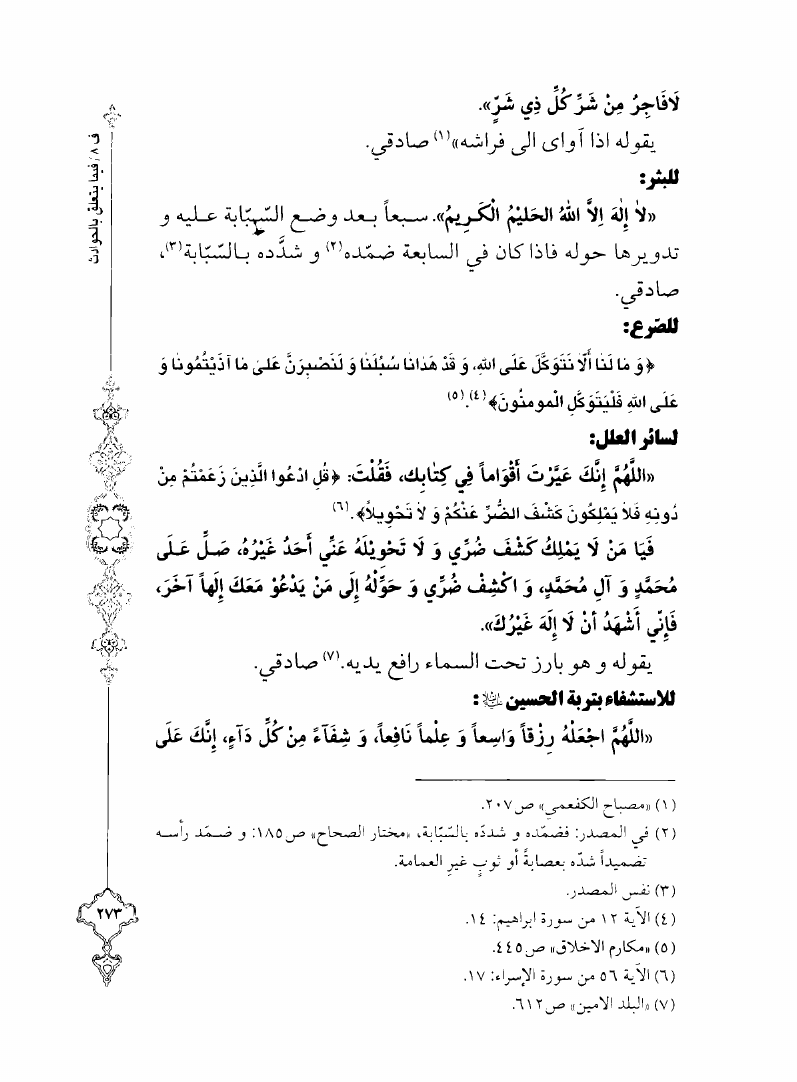 لَافَاجِرُ مِنْ شَرِّ كُلِّ ذِي شَرٍّ».
يقوله اذا آوای الى فراشه»(١) صادقي.
للبثر:
«لاٰ إِلٰهَ اِلاَّ اللهُ الحَليْمُ الْكَرِيمُ». سبعاً بعد وضع السّبّابة عليه و
تدويرها حوله فاذا كان في السابعة ضمّده(٢) و شدَّده بالسّبّابة(٣)،
صادقي.
للصّرع:
﴿وَ مٰا لَنٰا أَلاّٰ نَتَوَكَّلَ عَلَى اللهِ، وَ قَدْ هَدٰانٰا سُبُلَنٰا وَ لَنَصْبِرَنَّ عَلىٰ مٰا آذَيْتُمُونٰا وَ
عَلَى اللهِ فَلْيَتَوَكَّلِ الْمومنُونَ﴾(٤).(٥)
لسائر العلل:
«اللَّهُمَّ إِنَّكَ عَيَّرْتَ أَقْوَاماً فِي كِتٰابِك، فَقُلْتَ: ﴿قُلِ ادْعُوا الَّذِينَ زَعَمْتُمْ مِنْ
دُونِهِ فَلاٰ يَمْلِكُونَ كَشْفَ الضُّرِّ عَنْكُمْ وَ لاٰ تَحْوِيلاً﴾.(٦)
فَيَا مَنْ لَا يَمْلِكُ كَشْفَ ضُرِّي وَ لَا تَحْوِيْلَهُ عَنِّي أَحَدٌ غَيْرُهُ، صَلِّ عَلَى
مُحَمَّدٍ وَ آلِ مُحَمَّدٍ، وَ اكْشِفْ ضُرِّي وَ حَوِّلْهُ إِلَى مَنْ يَدْعُوْ مَعَكَ إِلَهاً آخَرَ،
فَإِنِّي أَشْهَدُ أَنْ لَا إِلَهَ غَيْرُكَ».
يقوله و هو بارز تحت السماء رافع يديه.(٧) صادقي.
للاستشفاء بتربة الحسين :
«اللَّهُمَّ اجْعَلْهُ رِزْقاً وَاسِعاً وَ عِلْماً نَافِعاً، وَ شِفَآءً مِنْ كُلِّ دَآءٍ، إِنَّكَ عَلَى
(١) «مصباح الكفعمي» ص٢٠٧.
(٢) في المصدر: فضمّده و شددّه بالسّبّابة، «مختار الصحاح» ص١٨٥: و ضمّد رأسه
تضميداً شدّه بعصابةً أو ثوبٍ غير العمامة.
(٣) نفس المصدر.
(٤) الآية ١٢ من سورة ابراهيم: ١٤.
(٥) «مكارم الاخلاق» ص٤٤٥.
(٦) الآية ٥٦ من سورة الإسراء: ١٧.
(٧) «البلد الامين» ص٦١٢.
ف ٨ / فيما يتعلق بالحوادث
٢٧٣